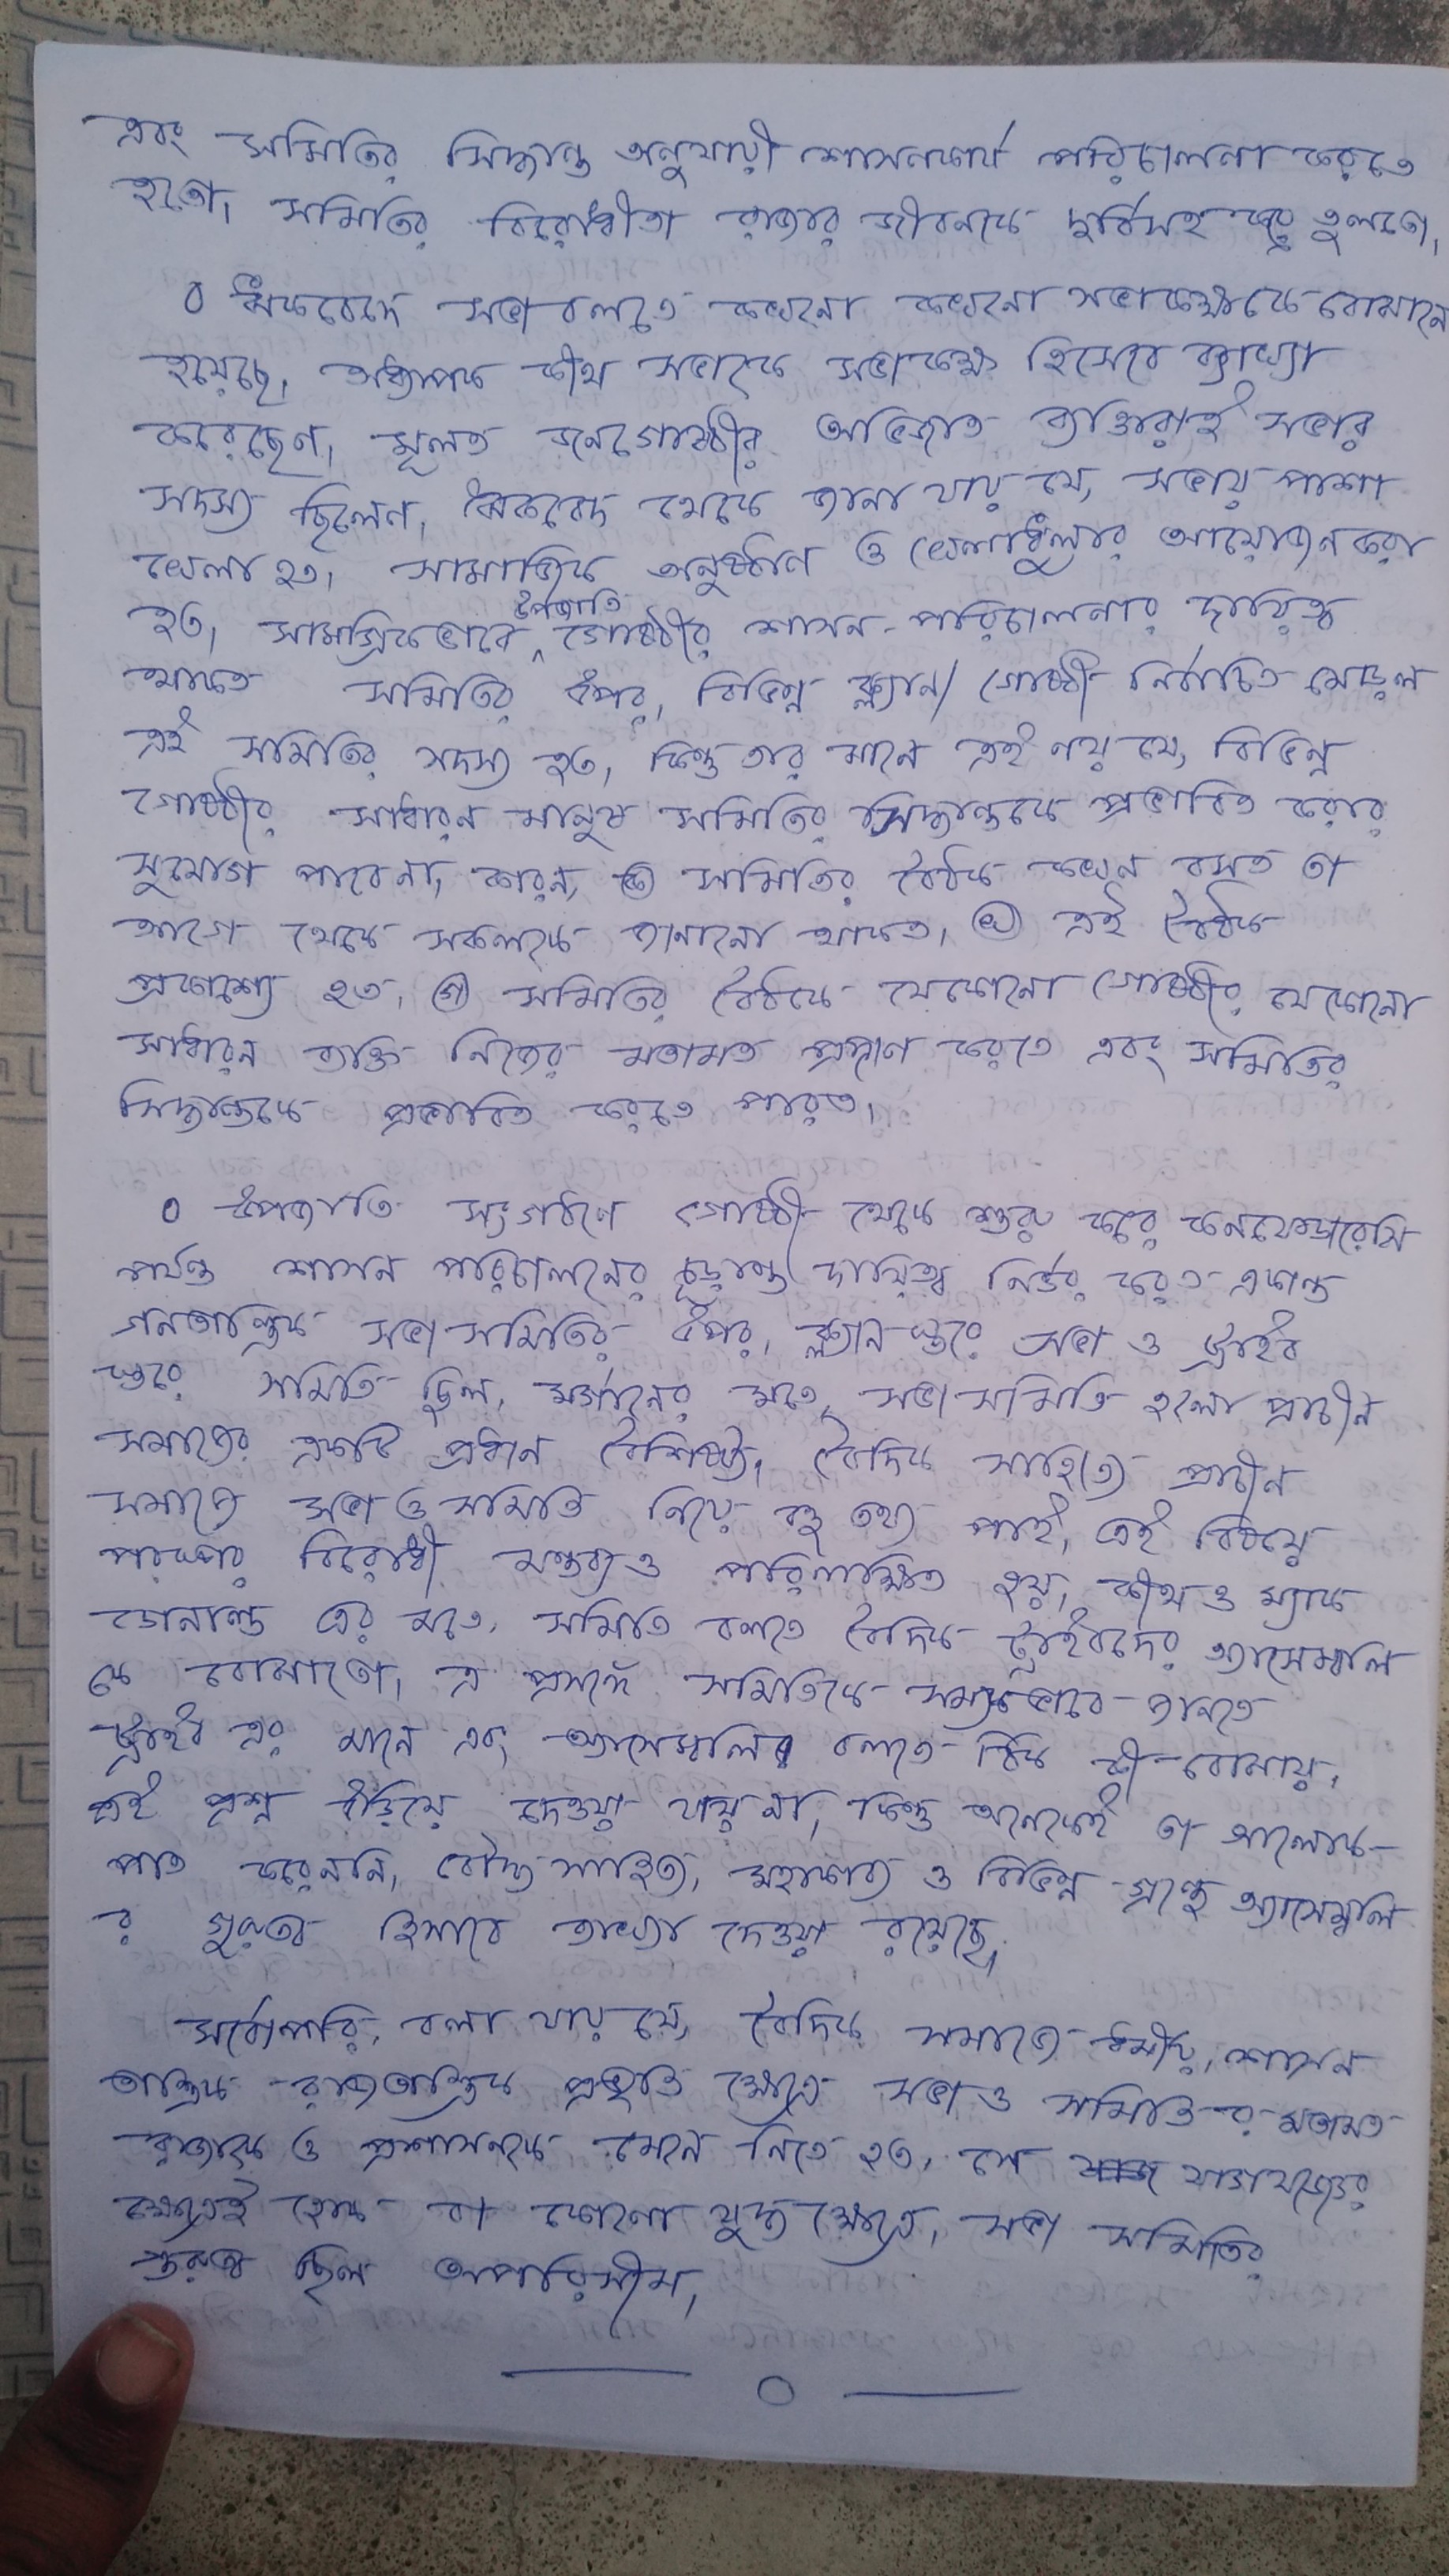 এবং সমিতির সিদ্ধান্ত অনুযায়ী শাসনকার্য পরিচালনা করতে
হতো। সমিতির বিরোধীতা রাজার জীবনকে দুর্বিসহ করে তুলতো।
০ ঋকবেদে সভা বলতে কখনো কখনো সভাকক্ষকে বোঝানো
হয়েছে। অধ্যাপক কীথ সভাকে সভাকক্ষ হিসেবে ব্যাখ্যা
করেছেন। মূলত জনগোষ্ঠীর অভিজাত ব্যক্তিরাই সভার
সদস্য ছিলেন। ঋকবেদ থেকে জানা যায় যে, সভায় পাশা
খেলা হত। সামাজিক অনুষ্ঠান ও খেলাধুলার আয়োজন করা
হত। সামগ্রিকভাবে উপজাতি গোষ্ঠীর শাসন পরিচালনার দায়িত্ব
থাকত সমিতির উপর। বিভিন্ন ক্ল্যান/গোষ্ঠী নির্বাচিত মোড়ল
এই সমিতির সদস্য হত। কিন্তু তার মানে এই নয় যে, বিভিন্ন
গোষ্ঠীর সাধারন মানুষ সমিতির সিদ্ধান্তকে প্রভাবিত করার
সুযোগ পাবেনা, কারন, (ক) সমিতির বৈঠক কখন বসত তা
আগে থেকে সকলকে জানানো থাকত। (খ) এই বৈঠক
প্রকাশ্যে হত। (গ) সমিতির বৈঠকে যেকোনো গোষ্ঠীর যেকোনো
সাধারন ব্যক্তি নিজের মতামত প্রদান করতে এবং সমিতির
সিদ্ধান্তকে প্রভাবিত করতে পারত।
০ উপজাতি সংগঠনে গোষ্ঠী থেকে শুরু করে কনফেডারেসি
পর্যন্ত শাসন পরিচালনের চূড়ান্ত দায়িত্ব নির্ভর করত একান্ত
গনতান্ত্রিক সভা সমিতির উপর। ক্ল্যান স্তরে সভা ও ট্রাইব
স্তরে সমিতি ছিল। মর্গানের মতে, সভা সমিতি হলো প্রাচীন
সমাজের একটি প্রধান বৈশিষ্ট্য। বৈদিক সাহিত্যে প্রাচীন
সমাজে সভা ও সমিতি নিয়ে বহু তথ্য পাই, এই বিষয়ে
পরস্পর বিরোধী মন্তব্য ও পরিলক্ষিত হয়। কীথ ও ম্যাক
ডোনাল্ড এর মতে, সমিতি বলতে বৈদিক ট্রাইবদের অ্যাসেম্বলি
কে বোঝাতো। এ প্রসঙ্গে সমিতিকে সম্যকভাবে জানতে
ট্রাইব এর মানে এবং অ্যাসেম্বলির বলতে ঠিক কী বোঝায়,
এই প্রশ্ন এড়িয়ে দেওয়া যায় না, কিন্তু অনেকেই তা আলোক-
পাত করেননি, বৌদ্ধ সাহিত্য, মহাকাব্য ও বিভিন্ন গ্রন্থে অ্যাসেম্বলি
র গুরুত্ব হিসাবে ব্যাখ্যা দেওয়া রয়েছে।
সর্বোপরি, বলা যায় যে, বৈদিক সমাজে ধর্মীয়, শাসন
তান্ত্রিক রাজতান্ত্রিক প্রভৃতি ক্ষেত্রে সভা ও সমিতি র মতামত
রাজাকে ও প্রশাসনকে মেনে নিতে হত, সে যাগযজ্ঞের
ক্ষেত্রেই হোক বা কোনো যুদ্ধ ক্ষেত্রে, সভা সমিতির
গুরুত্ব ছিল অপরিসীম।